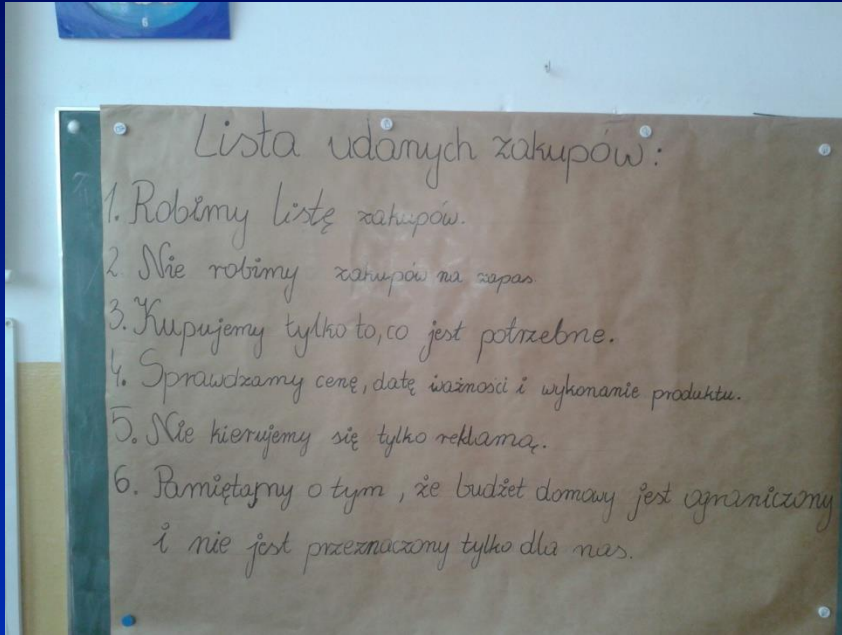 6
Lista udanych zakupów:
1. Robimy listę zakupów.
2 Nie robimy zakupów na zapas.
3. Kupujemy tylko to, co jest potrzebne.
4. Sprawdzamy cenę, datę ważności i wykonanie produktu.
5. Nie kierujemy się tylko reklamą.
6. Pamiętajmy o tym, że budżet domowy jest ograniczony
i nie jest przeznaczony tylko dla nas.